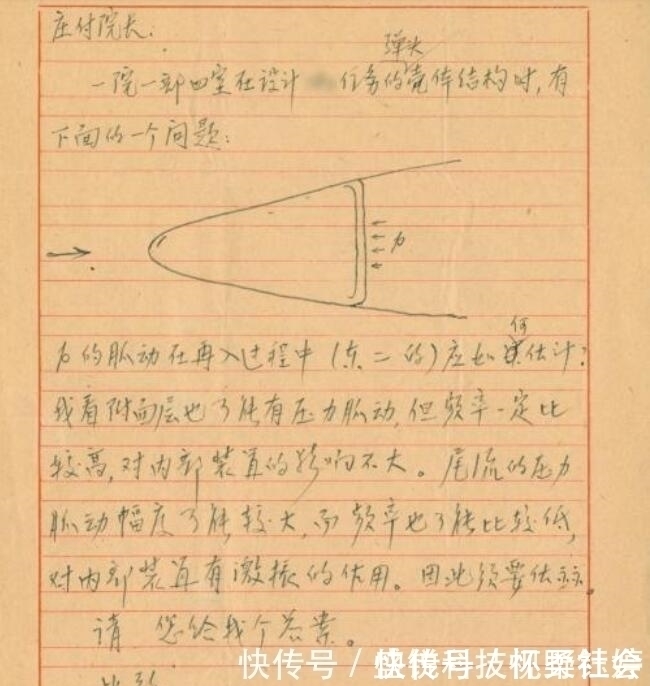 庄付院长:
弹头
一院一部四室在设计 任务的壳体结构时,有
下面的一个问题:
p
p的脈动在再入过程中(东二的)应如何估计?
我看附面层也可能有压力脈动,但频率一定比
较高,对内部装置的影响不大。尾流的压力
脈动幅度可能较大,而频率也可能比较低,
对内部装置有激振的作用。因此须要估
请 您给我个答案。
此致
快传号/